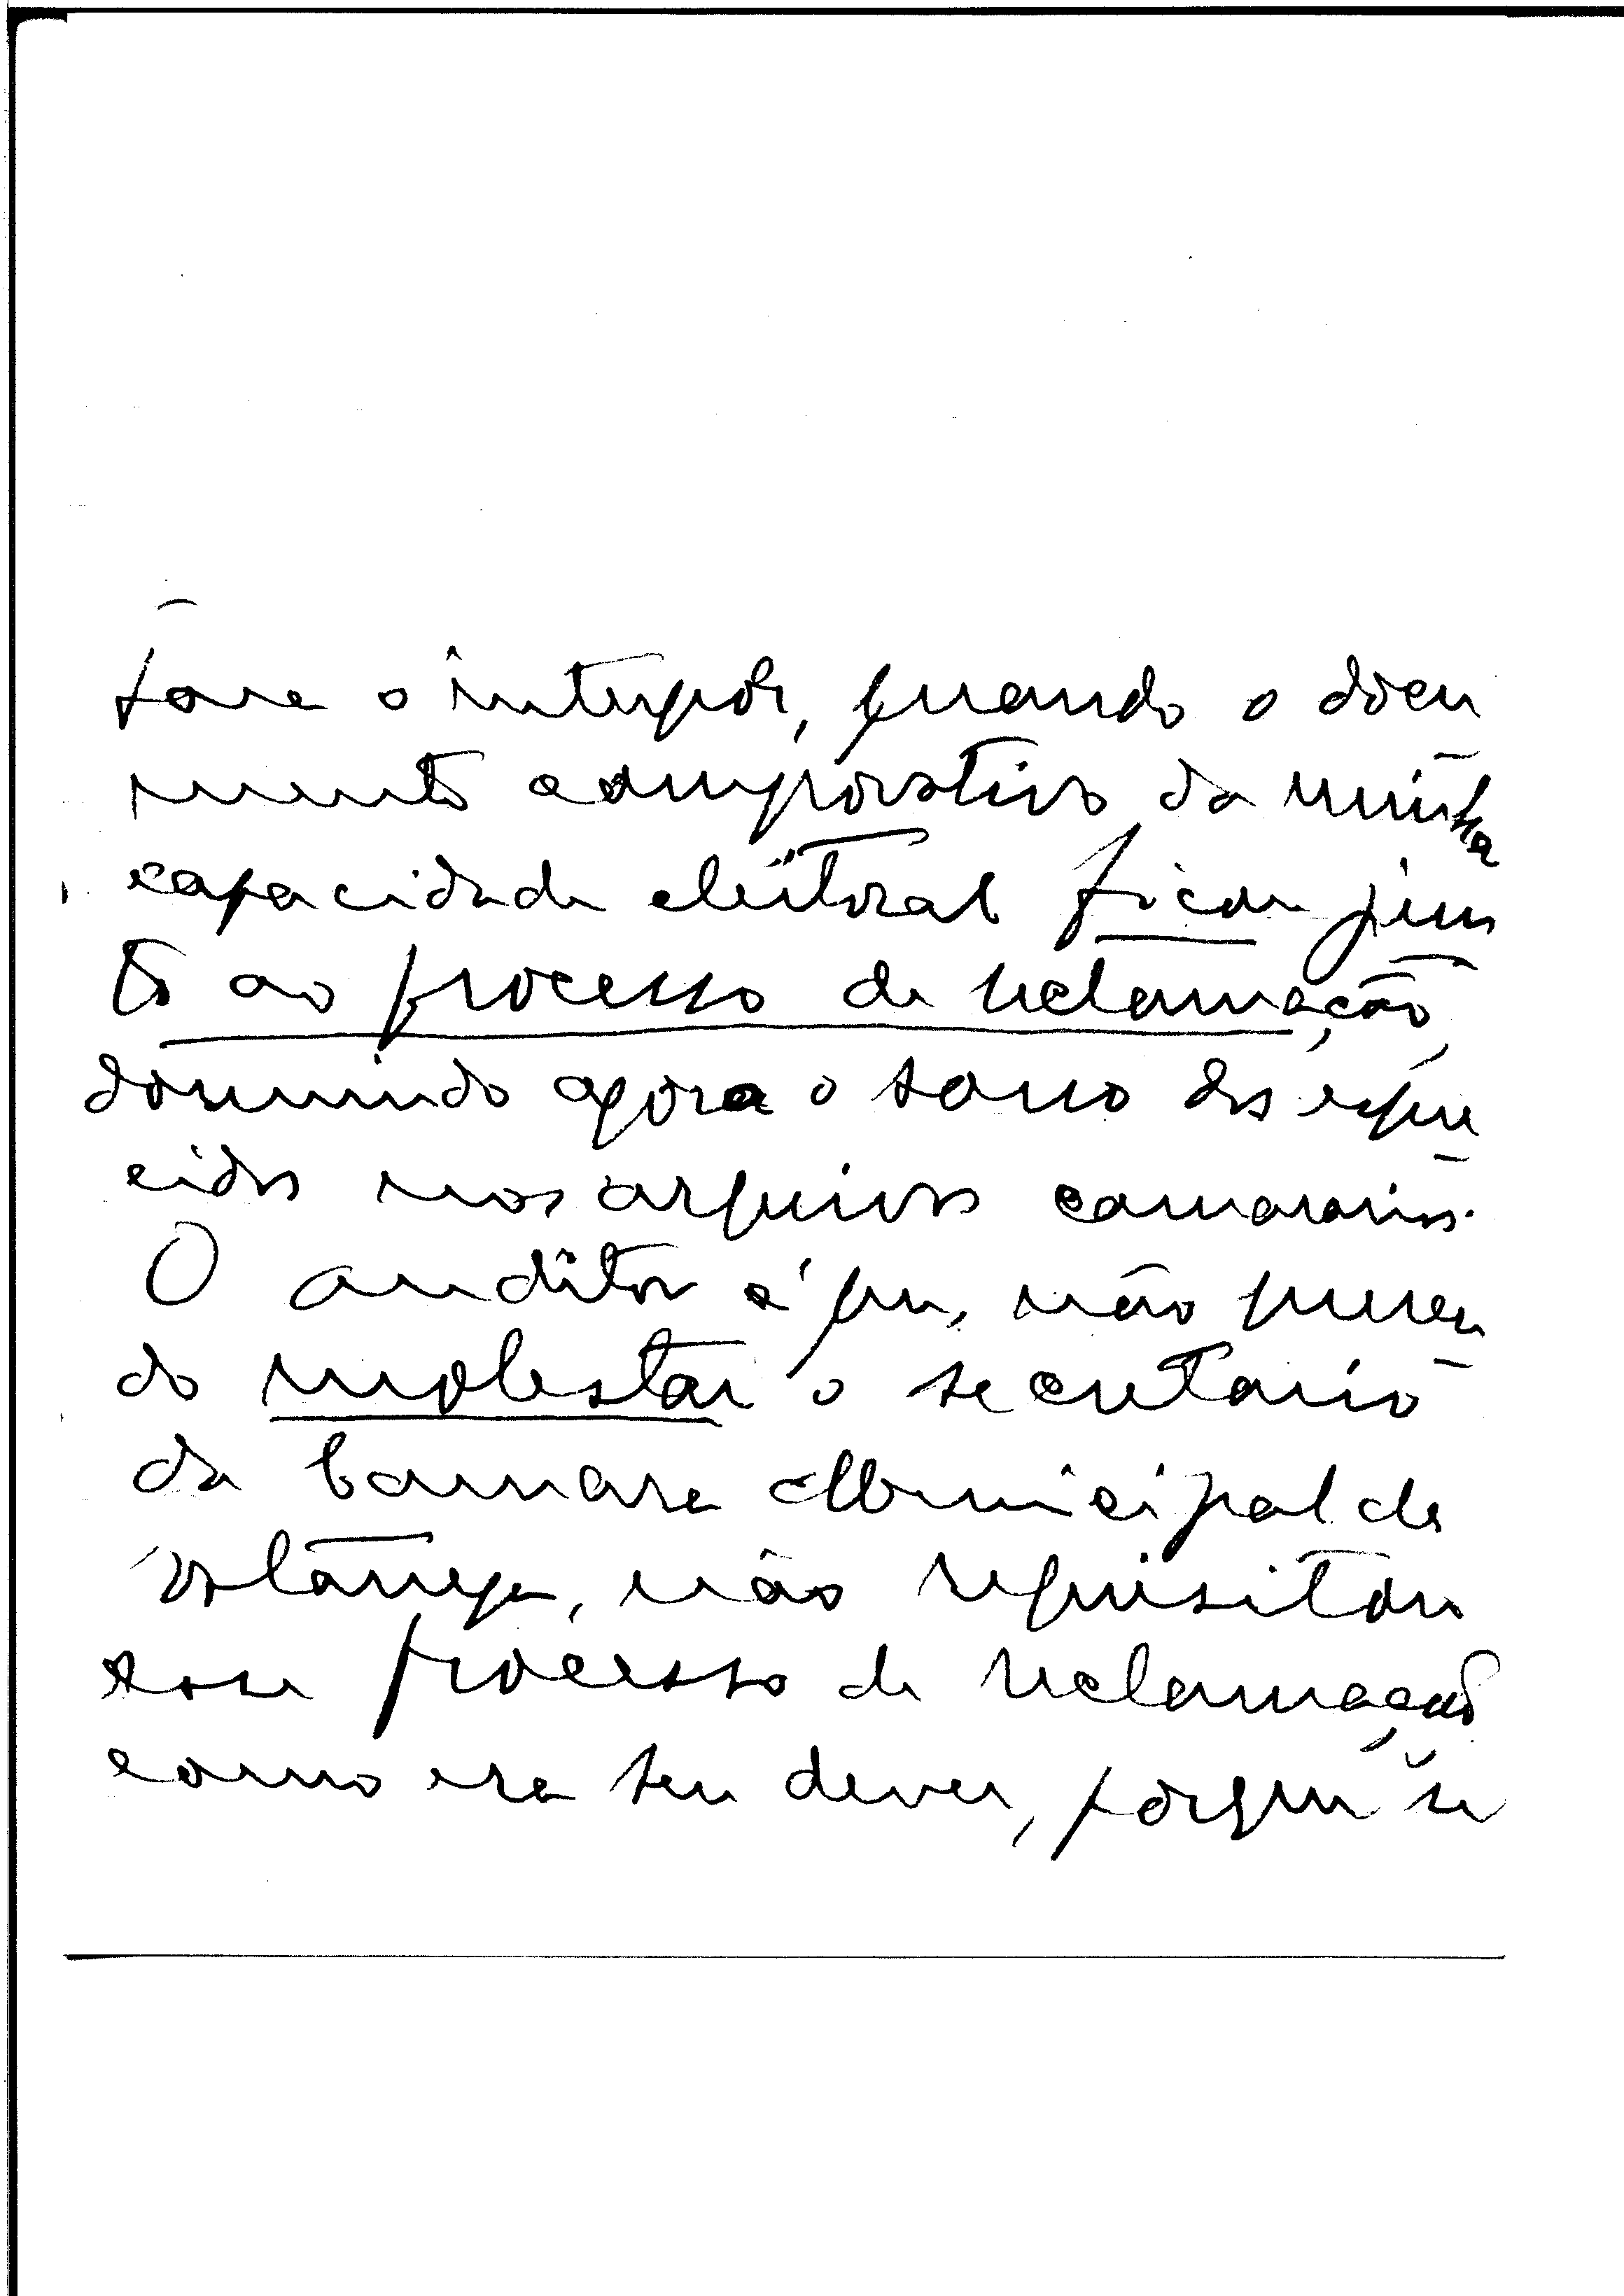 para o interpôr, quando o docu
mento comprovativo da minha
capacidade eleitoral ficou jun
to ao processo de reclamação,
dormindo agora o sono dos esque
cidos nos arquivos camararios.
O auditor é que, não queren
do molestar o secretario
da Camara Municipal de
não requisitou
esse processo de reclamação
como era seu dever, porque se